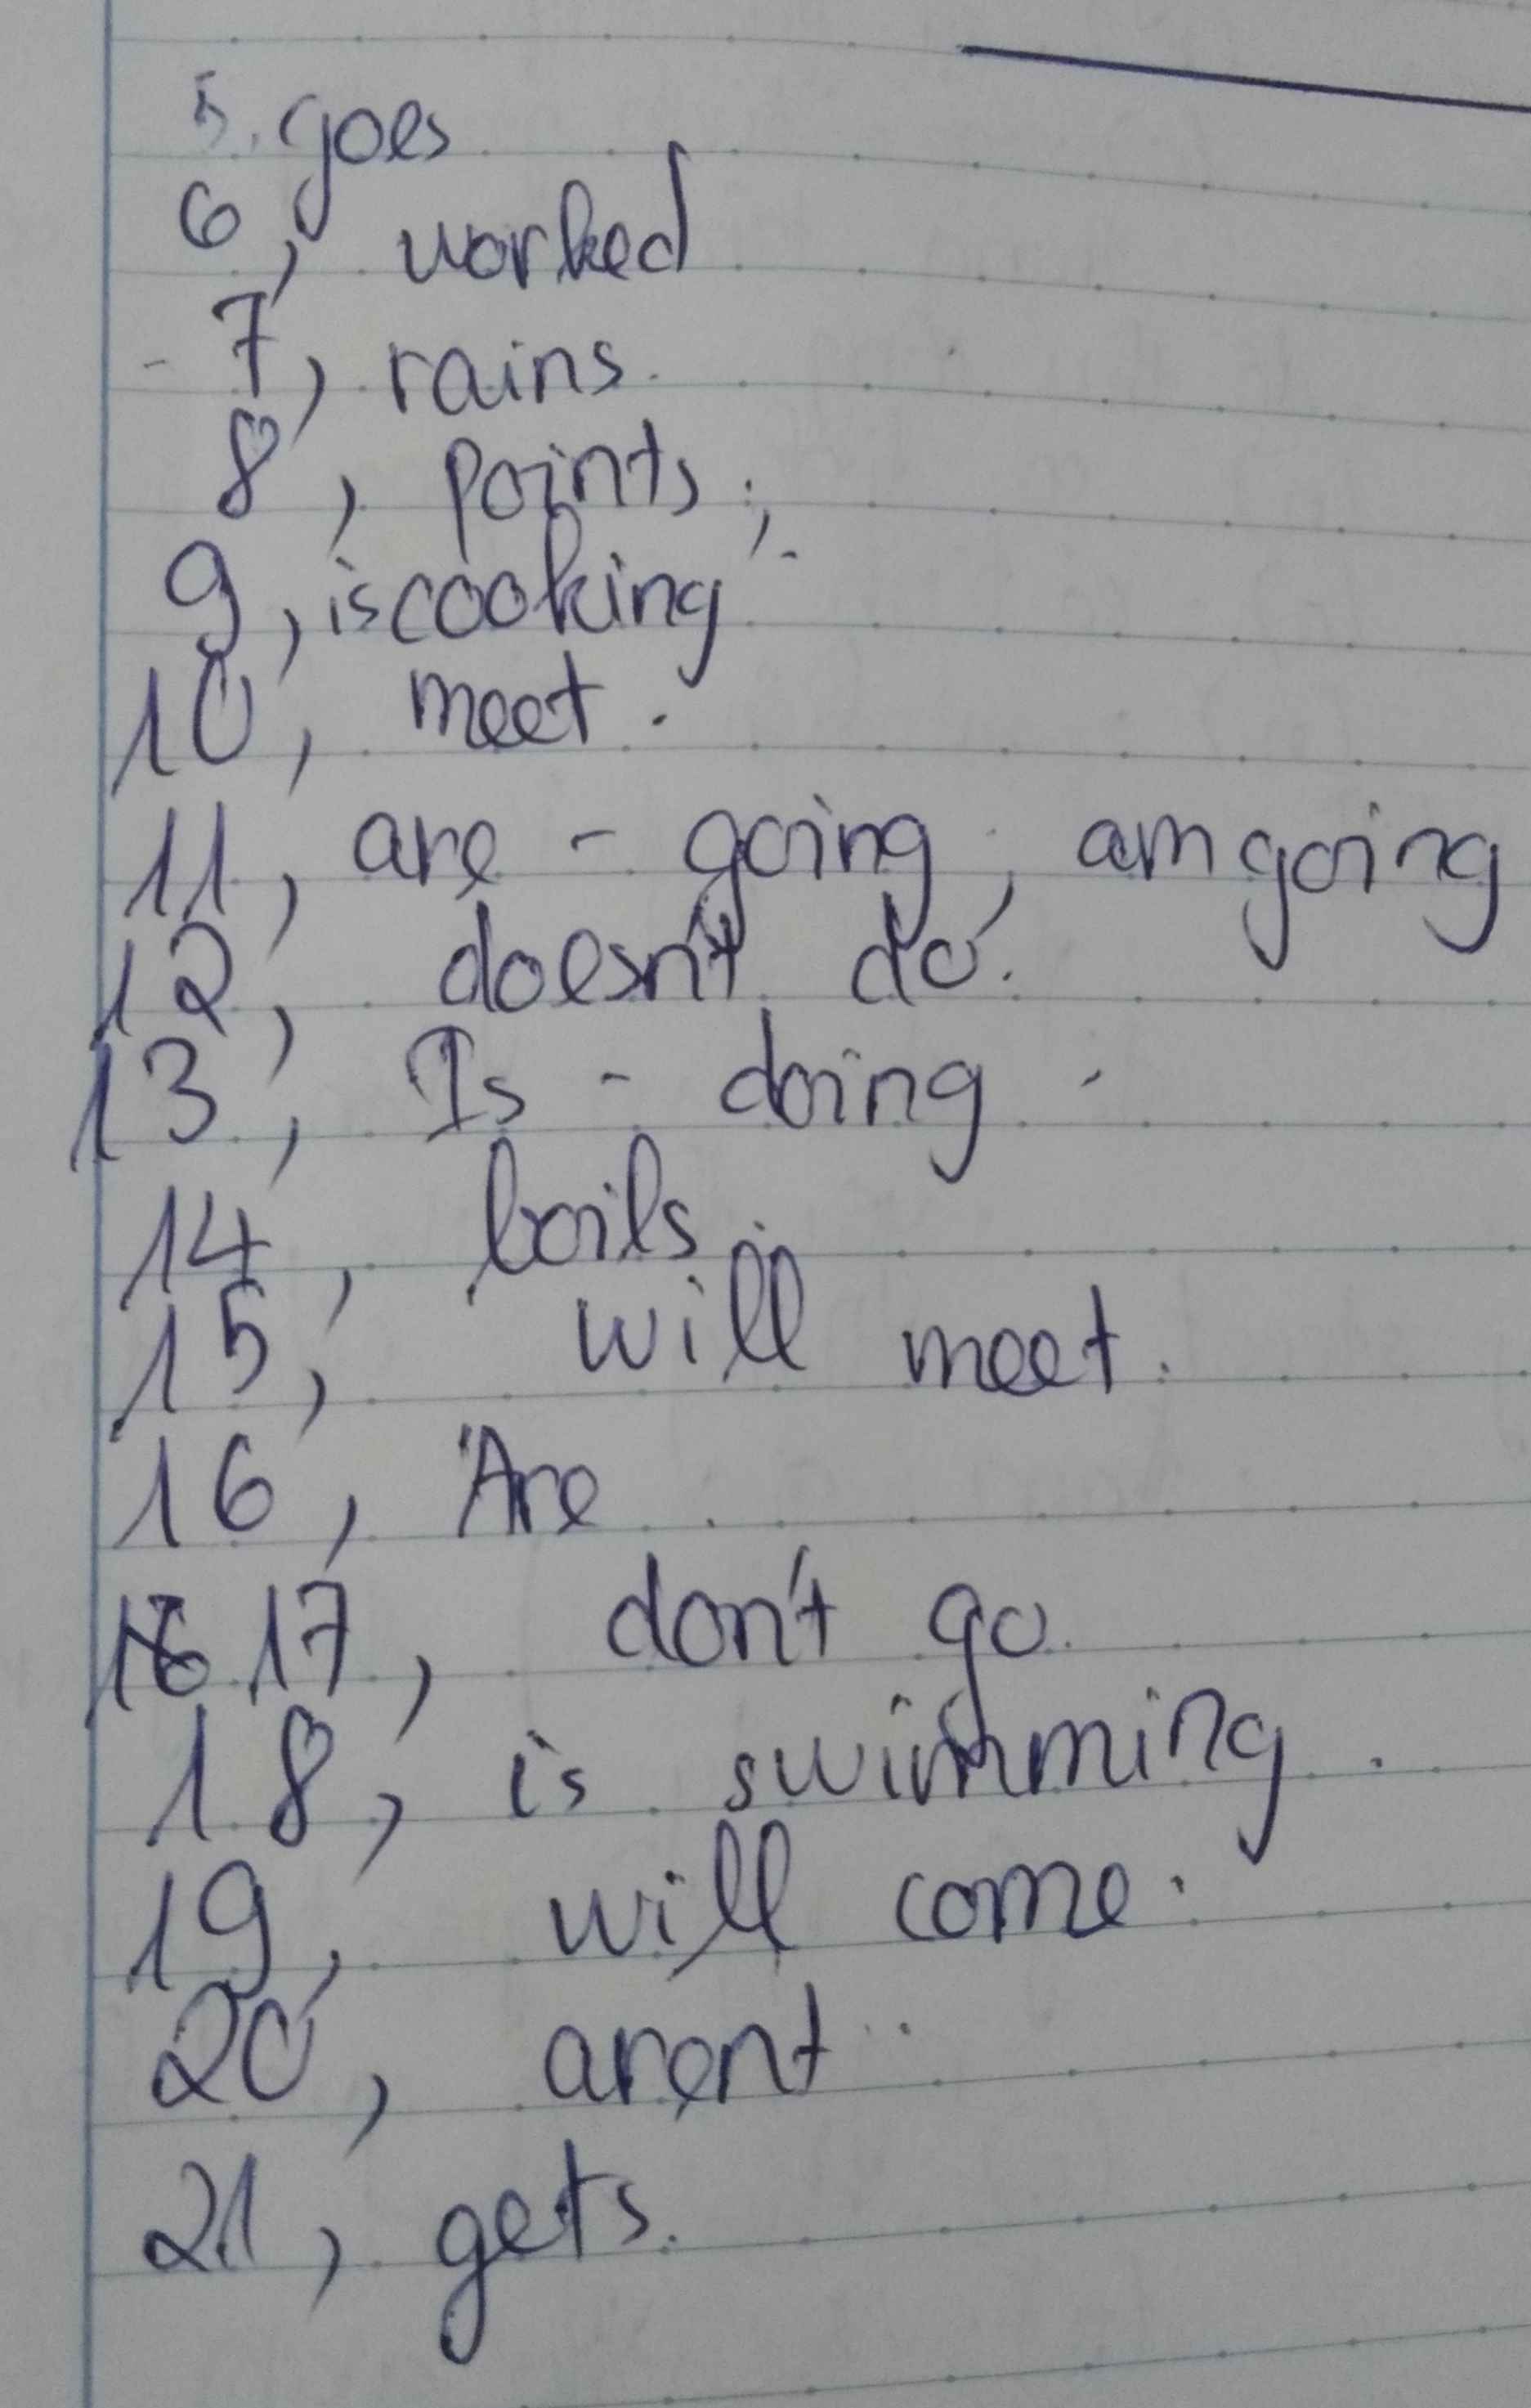 5. goes
6, worked
7, rains.
8, points.
9, is cooking
10, meet.
11, are - going, am going
12, doesn't do.
13, Is - doing
14, boils.
15, will meet.
16, Are
17, don't go.
18, is swimming.
19, will come.
20, arent
21, gets.